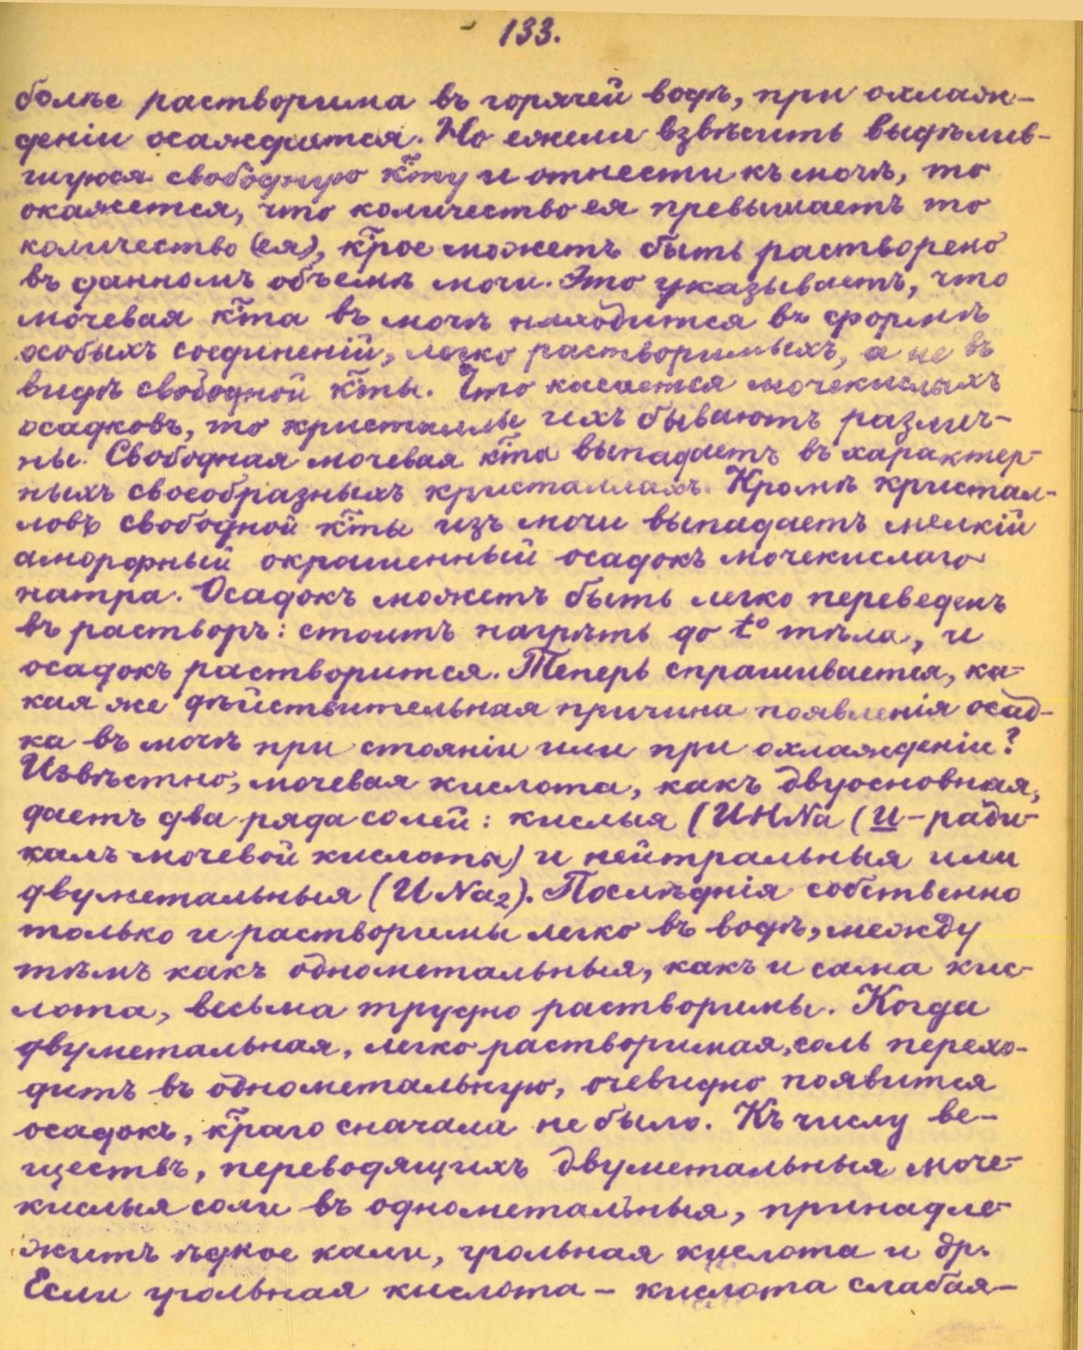 133.
болѣе растворима въ горячей водѣ, при охлаж-
деніи осаждается. Но ежели взвѣсить выдѣлив-
шуюся свободную к̄ту и отнести къ мочѣ, то
окажется, что количество ея превышаетъ то
количество (ея), к̄рое можетъ быть растворено
въ данномъ объемѣ мочи. Это указываетъ, что
мочевая к̄та въ мочѣ находится въ формѣ
особыхъ соединеній, легко растворимыхъ, а не въ
видѣ свободной к̄ты. Что касается мочекислыхъ
осадковъ, то кристаллы ихъ бываютъ различ-
ны. Свободная мочевая к̄та выпадаетъ въ характер-
ныхъ своеобразныхъ кристаллахъ. Кромѣ кристал-
ловъ свободной к̄ты изъ мочи выпадаетъ мелкій
аморфный окрашенный осадокъ мочекислаго
натра. Осадокъ можетъ быть легко переведенъ
въ растворъ: стоитъ нагрѣть до t° тѣла, и
осадокъ растворится. Теперь спрашивается, ка-
кая же дѣйствительная причина появленія осад-
ка въ мочѣ при стояніи или при охлажденіи?
Извѣстно, мочевая кислота, какъ двуосновная,
даетъ два ряда солей: кислыя (ИНNa (И-ради-
калъ мочевой кислоты) и нейтральныя или
двуметальныя (ИNa₂). Послѣднія собственно
только и растворимы легко въ водѣ, между
тѣмъ какъ однометальныя, какъ и сама кис-
лота, весьма трудно растворимы. Когда
двуметальная, легко растворимая, соль перехо-
дитъ въ однометальную, очевидно появится
осадокъ, к̄раго сначала не было. Къ числу ве-
ществъ, переводящихъ двуметальныя моче-
кислыя соли въ однометальныя, принадле-
житъ ѣдкое кали, угольная кислота и др.
Если угольная кислота – кислота слабая–